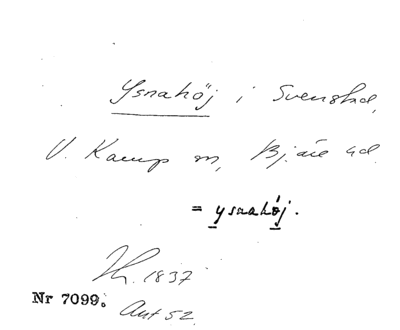 Ysnahöj i Svenstad,
V. Karup sn, Bjäre hd.
= ysnahöj.
Th. 1837
Nr 7099.
Ant 52